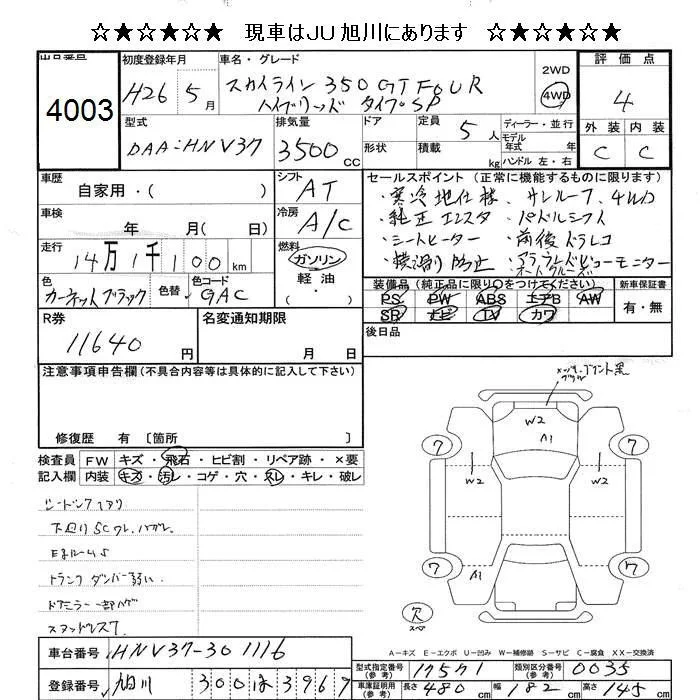 ☆★☆★☆ 現車はJU旭川にあります ☆★☆★☆
出品番号 初度登録年月 車名・グレード 2WD 評価点
4003 H26 5月 スカイライン 350GT FOUR
ハイブリッド タイプSP 4WD 4
型式 排気量 ドア 定員 5人 ディーラー・並行 外装 内装
DAA-HNV37 3500cc 形状 積載 kg モデル年式 年 C C
ハンドル 左・右
車歴 シフト セールスポイント(正常に機能するものに限ります)
自家用・( ) AT ・寒冷地仕様、サンルーフ、4WD
車検 冷房 ・純正エンスタ ・パドルシフト
年 月( 日) A/C ・シートヒーター ・前後ドラレコ
走行 燃料 ・横滑り防止 ・アラウンドビューモニター
14万1千100km ガソリン
軽油
・( )
色 色替 色コード 装備品(純正品に限り○をつけてください) 新車保証書
ガーネットブラック GAC PS PW ABS エアB AW 有・無
SR ナビ TV カワ
R券 名変通知期限 後日品
11640円 月 日
注意事項申告欄(不具合内容等は具体的に記入して下さい)
修復歴 有 〔箇所 〕
検査員 FW キズ・飛石・ヒビ割・リペア跡・×要
記入欄 内装 キズ・汚レ・コゲ・穴・スレ・キレ・破レ
下廻りSCワレ、ハガレ
トランクダンパー弱い
ドアミラー一部ハゲ
スタッドレス7
W2
A1
7 7
W2 W2
7 7
A1
欠
スペア
A-キズ E-エクボ U-凹み W-補修跡 S-サビ C-腐食 XX-交換済
車台番号 HNV37-301116
型式指定番号(参考) 17571 類別区分番号(参考) 0035
登録番号 旭川 300 ほ 3967
車庫証明用(参考) 長さ 480cm 幅 182cm 高さ 145cm